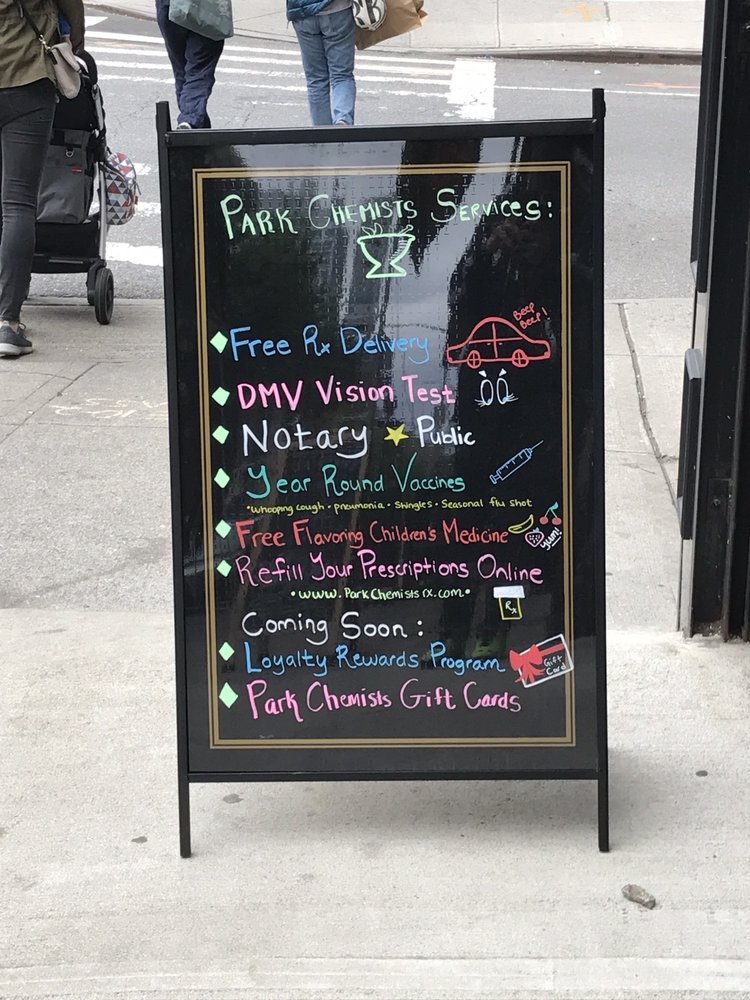 PARK CHEMISTS SERVICES:
BEEP
BEEP!
Free Rx Delivery
DMV Vision Test
Notary Public
Year Round Vaccines
•Whooping cough • pneumonia • Shingles • Seasonal flu shot
Free Flavoring Children's Medicine
yum!
Refill Your Prescriptions Online
•www.ParkChemistsrx.com•
Rx
Coming Soon:
Loyalty Rewards Program
Gift
Card
Park Chemists Gift Cards